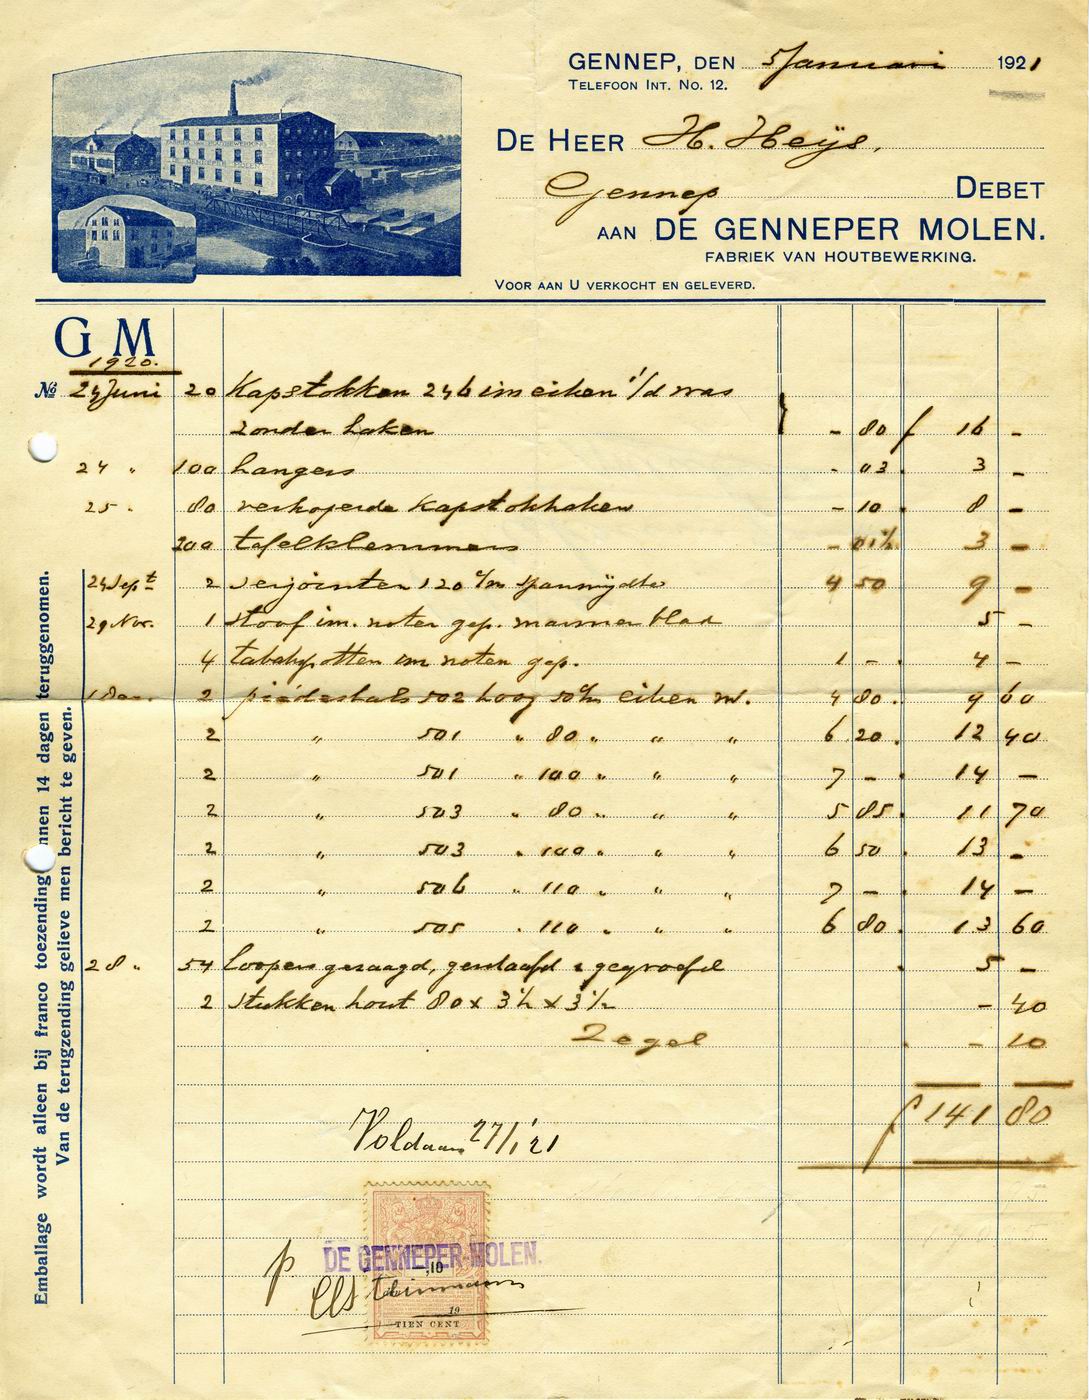 GENNEP, DEN 5 Januari 1921
TELEFOON INT. No. 12.
DE HEER H. Heijs,
Gennep DEBET
AAN DE GENNEPER MOLEN.
FABRIEK VAN HOUTBEWERKING.
VOOR AAN U VERKOCHT EN GELEVERD.
G M
1920.
No 24 Juni 20 Kapstokken 246 im eiken i/d was
zonder haken - 80 f 16 -
24 " 100 hangers - 03 . 3 -
25 " 80 verkoperde Kapstokhaken - 10 8 -
200 tafelklemmers - 01½ 3 -
24 Sept 2 serjointen 120 c/m spanwijdte 4 50 9 -
29 Nov. 1 stoof im. noten gep. marmer blad 5 -
4 tabakpotten im noten gep. 1 - . 4 -
1 Dec. 2 piedestals 502 hoog 50 c/m eiken w. 4 80 . 9 60
2 " 501 " 80 " " " 6 20 . 12 40
2 " 501 " 100 " " " 7 - . 14 -
2 " 503 " 80 " " " 5 85 . 11 70
2 " 503 " 100 " " " 6 50 . 13 -
2 " 506 " 110 " " " 7 - . 14 -
2 " 505 " 110 " " " 6 80 . 13 60
28 " 54 loopers gezaagd, geschaafd & gegroefd . 5 -
2 stukken hout 80 x 3½ x 3½ - 40
Zegel . - 10
f 141 80
Voldaan 27/1 '21
p DE GENNEPER MOLEN.
-,10
19
TIEN CENT
Emballage wordt alleen bij franco toezending nnen 14 dagen teruggenomen.
Van de terugzending gelieve men bericht te geven.